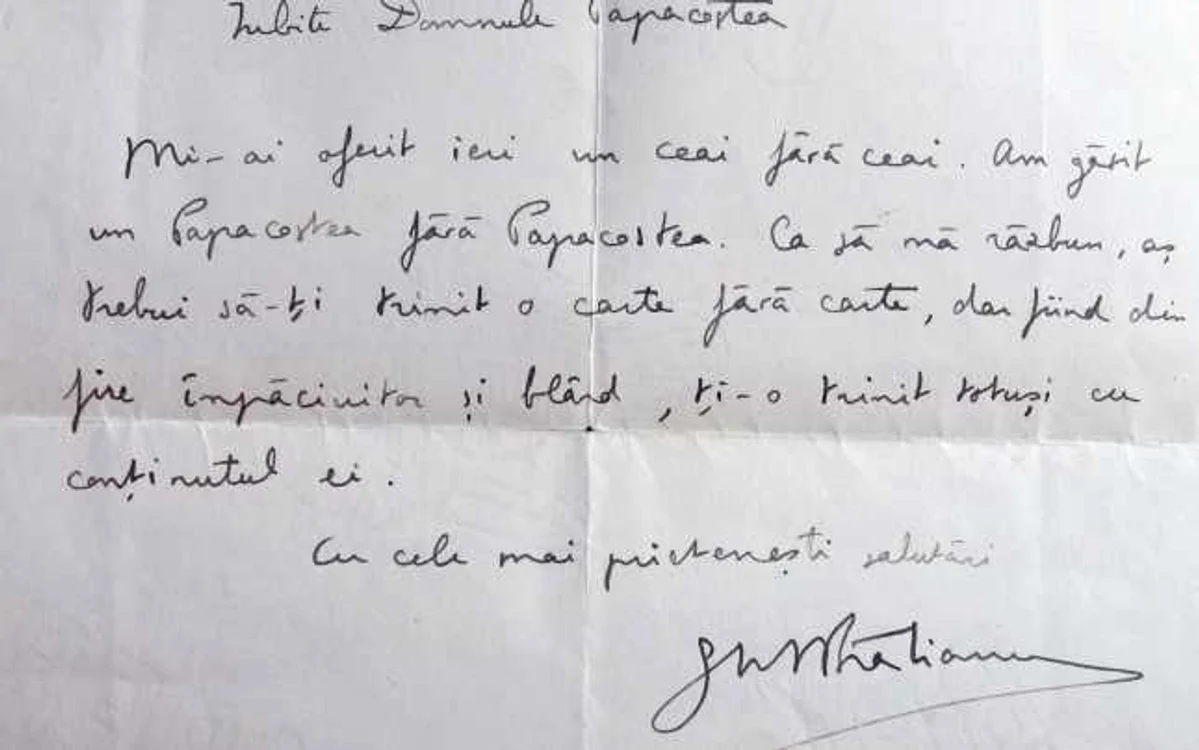 Iubite Domnule Papacostea
Mi-ai oferit ieri un ceai fără ceai. Am găsit
un Papacostea fără Papacostea. Ca să mă răzbun, aș
trebui să-ți trimit o carte fără carte, dar fiind din
fire împăciuitor și blând, ți-o trimit totuși cu
conținutul ei.
Cu cele mai prietenești salutări
GIBrătianu